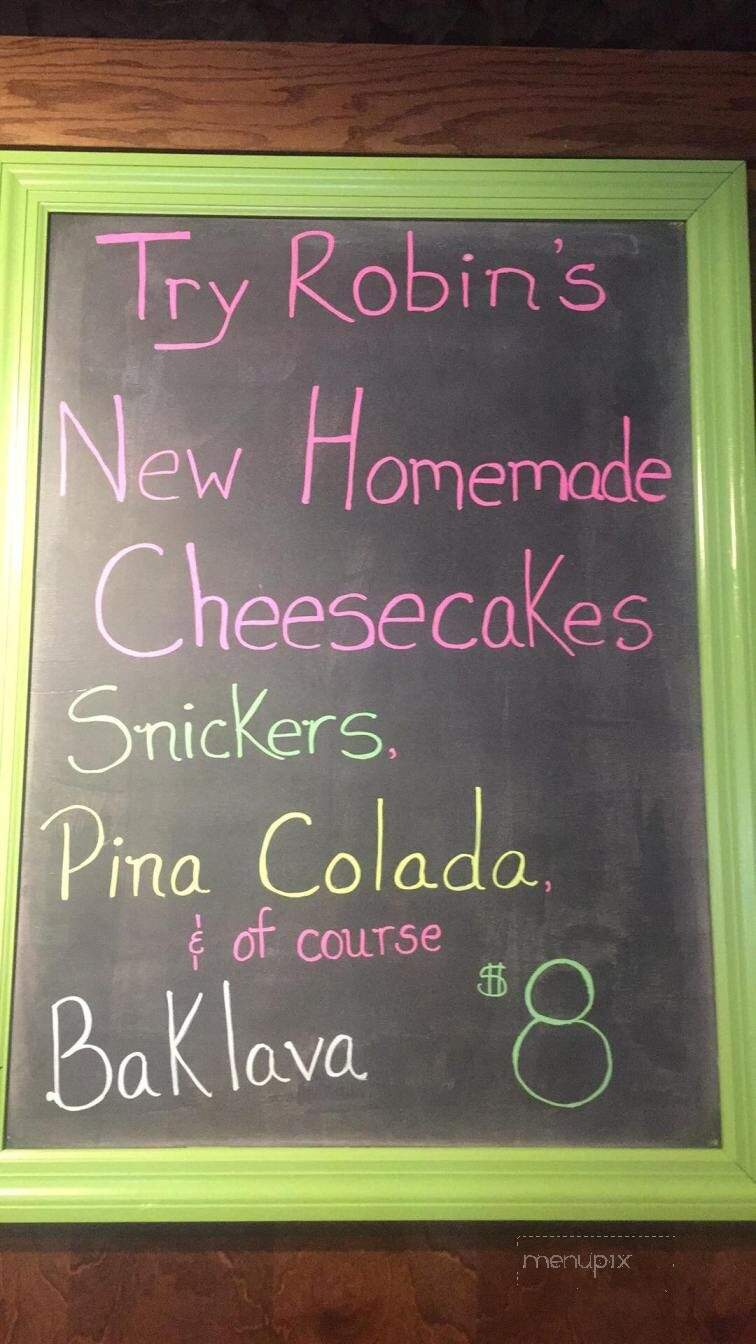 Try Robin's
New Homemade
Cheesecakes
Snickers,
Pina Colada,
& of course
Baklava $8
menupix